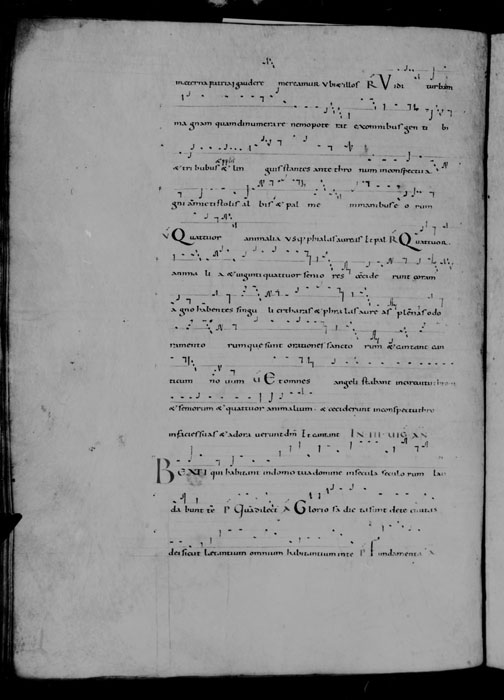 mea erna patria gaudere mereamur Vbi & illos R Vidi turbam
magnam quam dinumerare nemo pote rat ex omnibus gen ti bi
& tri bubus & lin guis stantes ante thro num inconspectu a
gni amicti stolis al bis & pal me in manibus e o rum
V Quattuor animalia usq phialas aureas Et pal R Quattuor
anima li a & uiginti quattuor senio res cecide runt coram
agno habentes singu li citharas & phia las aure as plenas odo
ramento rum que sunt orationes sancto rum & cantant can
ticum no uum V Et omnes angeli stabant in circuitu throni
& seniorum & quattuor animalium & ceciderunt inconspectu thro
in facies suas & adora uerunt dm Et cantant IN III VIG AN
BEATI qui habitant in domo tua domine in secula seculorum lau
da bunt te ps Quā dilecta A Gloriosa dic ta sunt de te ciuitas
dei sicut letantium omnium habitantium in te ps Fundamenta A